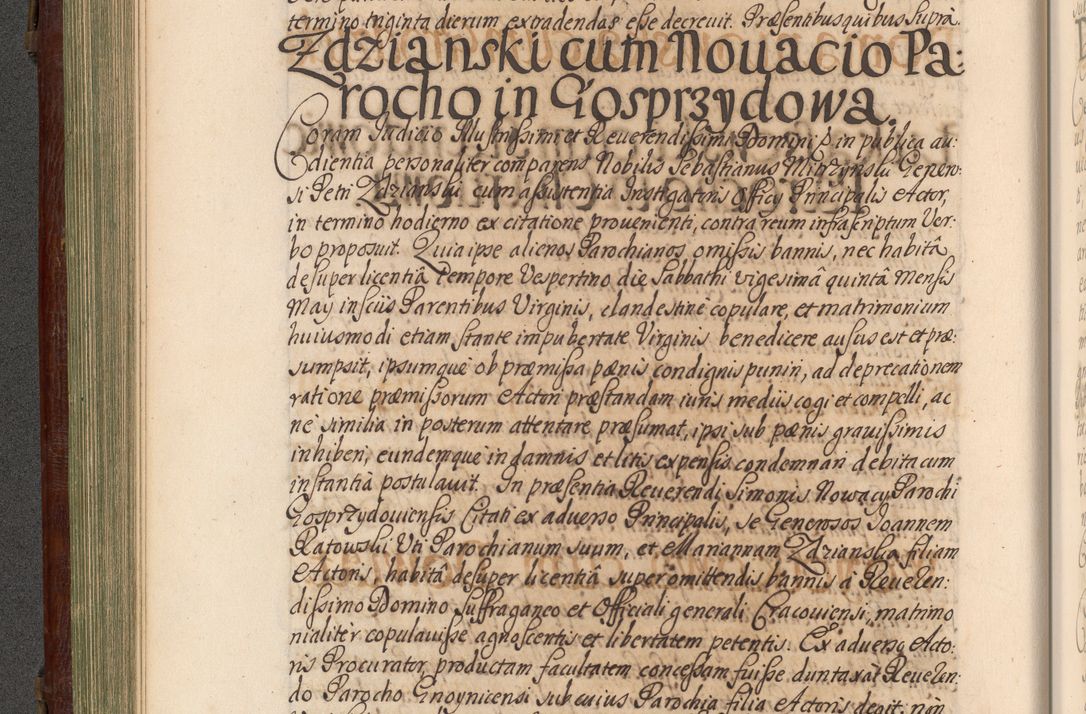 termino triginta dierum extradendas esse decreuit. Præsentibus quibus supra.
Zdzianski cum Nouacio Pa:
rocho in Gosprzydowa.
Coram Judicio Illustrissimi et Reuerendissimi Domini in publica au:
dientia personaliter comparens Nobilis Sebastianus Mirzynski Genero:
si Petri Zdzianski cum assistentia Instigatoris Officij Principalis Actor,
in termino hodierno ex citatione prouenienti, contra reum infrascriptum Ver:
bo proposuit. Quia ipse alienos Parochianos, omissis bannis, nec habitâ
desuper licentiâ tempore Vespertino die Sabbathi vigesimâ quintâ Mensis
Maÿ insciis Parentibus Virginis, clandestinè copulare, et matrimonium
huiusmodi etiam stante impubertate Virginis benedicere ausus est et præ:
sumpsit, ipsumque ob præmissa pænis condignis puniri, ad deprecationem
ratione præmissorum Actori præstandam iuris mediis cogi et compelli, ac
ne similia in posterum attentare præsumat, ipsi sub pænis grauissimis
inhiberi, eundemque in damnis et litis expensis condemnari debita cum
instantiâ postulauit. In præsentia Reuerendi Simonis Nowacy Parochi
Gosprzydouiensis Citati ex aduerso Principalis, se Generosos Joannem
Ratowski Uti Parochianum suum, et Mariannam Zdzianska filiam
Actoris, habitâ desuper licentiâ super omittendis bannis à Reueren:
dissimo Domino Suffraganeo et Officiali generali Cracouiensi, matrimo
nialiter copulauisse agnoscentis et libertatem petentis. Ex aduerso Acto:
ris Procurator productam facultatem concessam fuisse duntaxàt Reueren:
do Parocho Gnoynicensi sub cuius Parochia filia Actoris degit, non